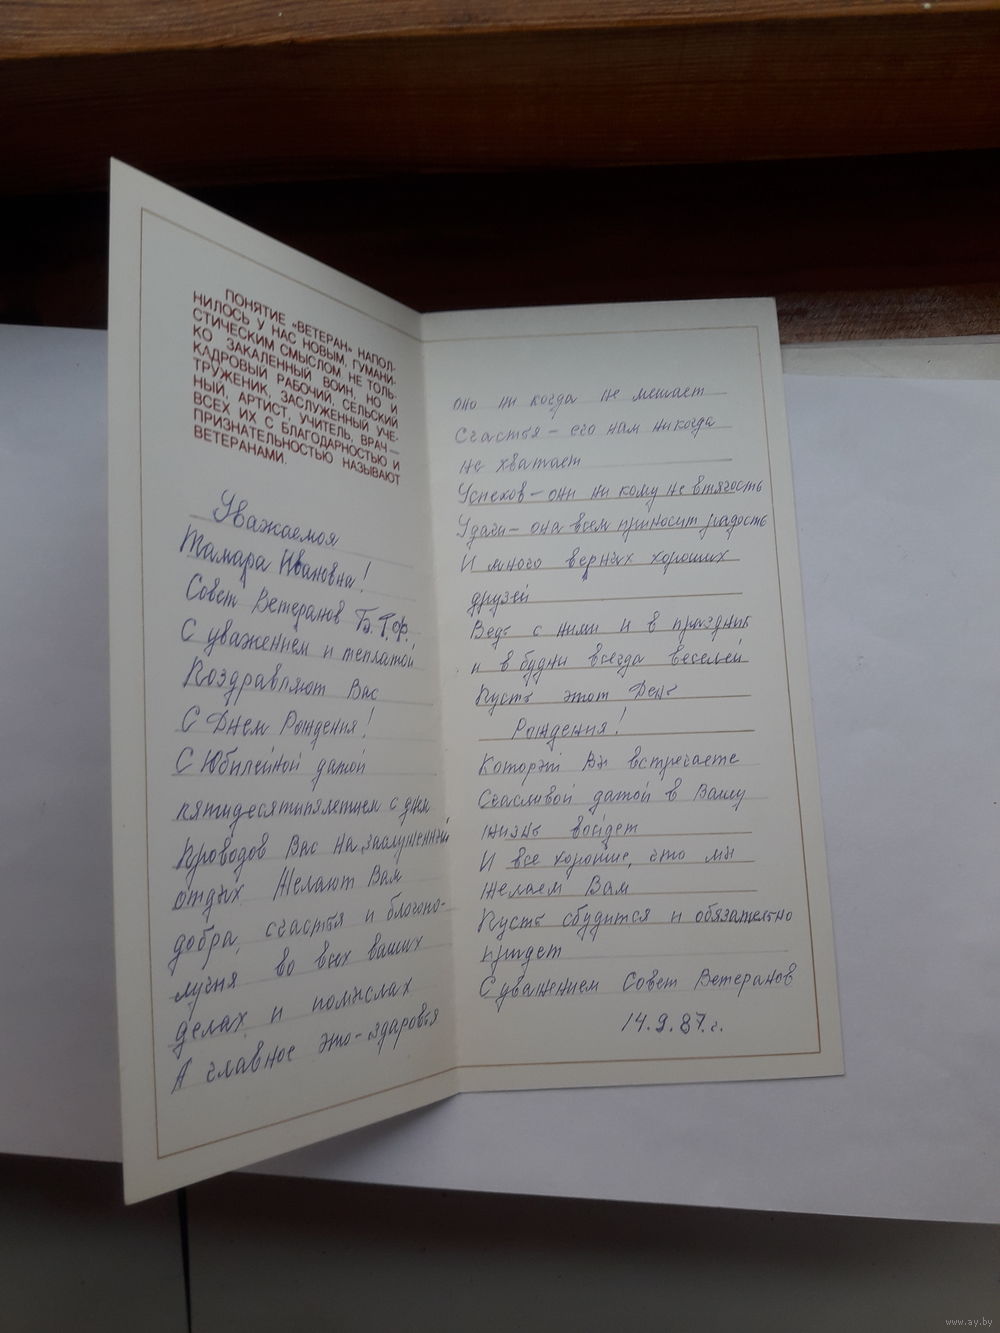 ПОНЯТИЕ «ВЕТЕРАН» НАПОЛ-
НИЛОСЬ У НАС НОВЫМ, ГУМАНИ-
СТИЧЕСКИМ СМЫСЛОМ. НЕ ТОЛЬ-
КО ЗАКАЛЕННЫЙ ВОИН, НО И
КАДРОВЫЙ РАБОЧИЙ, СЕЛЬСКИЙ
ТРУЖЕНИК, ЗАСЛУЖЕННЫЙ УЧЕ-
НЫЙ, АРТИСТ, УЧИТЕЛЬ, ВРАЧ —
ВСЕХ ИХ С БЛАГОДАРНОСТЬЮ И
ПРИЗНАТЕЛЬНОСТЬЮ НАЗЫВАЮТ
ВЕТЕРАНАМИ.
Уважаемая
Тамара Ивановна!
Совет Ветеранов Б.Т.Ф.
С уважением и теплатой
Поздравляют Вас
С Днем Рождения!
С Юбилейной датой
пятидесятипялетием с днем
Проводов Вас на заслуженный
отдых Желают Вам
добра, счастья и благопо-
лучия во всех ваших
делах и помыслах
А главное это-здоровья
оно ни когда не мешает
Счастья – его нам никогда
не хватает
Успехов – они ни кому не втягость
Удачи – она всем приносит радость
И много верных хороших
друзей
Ведь с ними и в праздник
и в будни всегда веселей
Пусть этот День
Рождения!
Который Вы встречаете
Счасливой датой в Вашу
жизнь войдет
И все хорошие, что мы
желаем Вам
Пусть сбудится и обязательно
придет
С уважением Совет Ветеранов
14.9.87.г.
www.ay.by